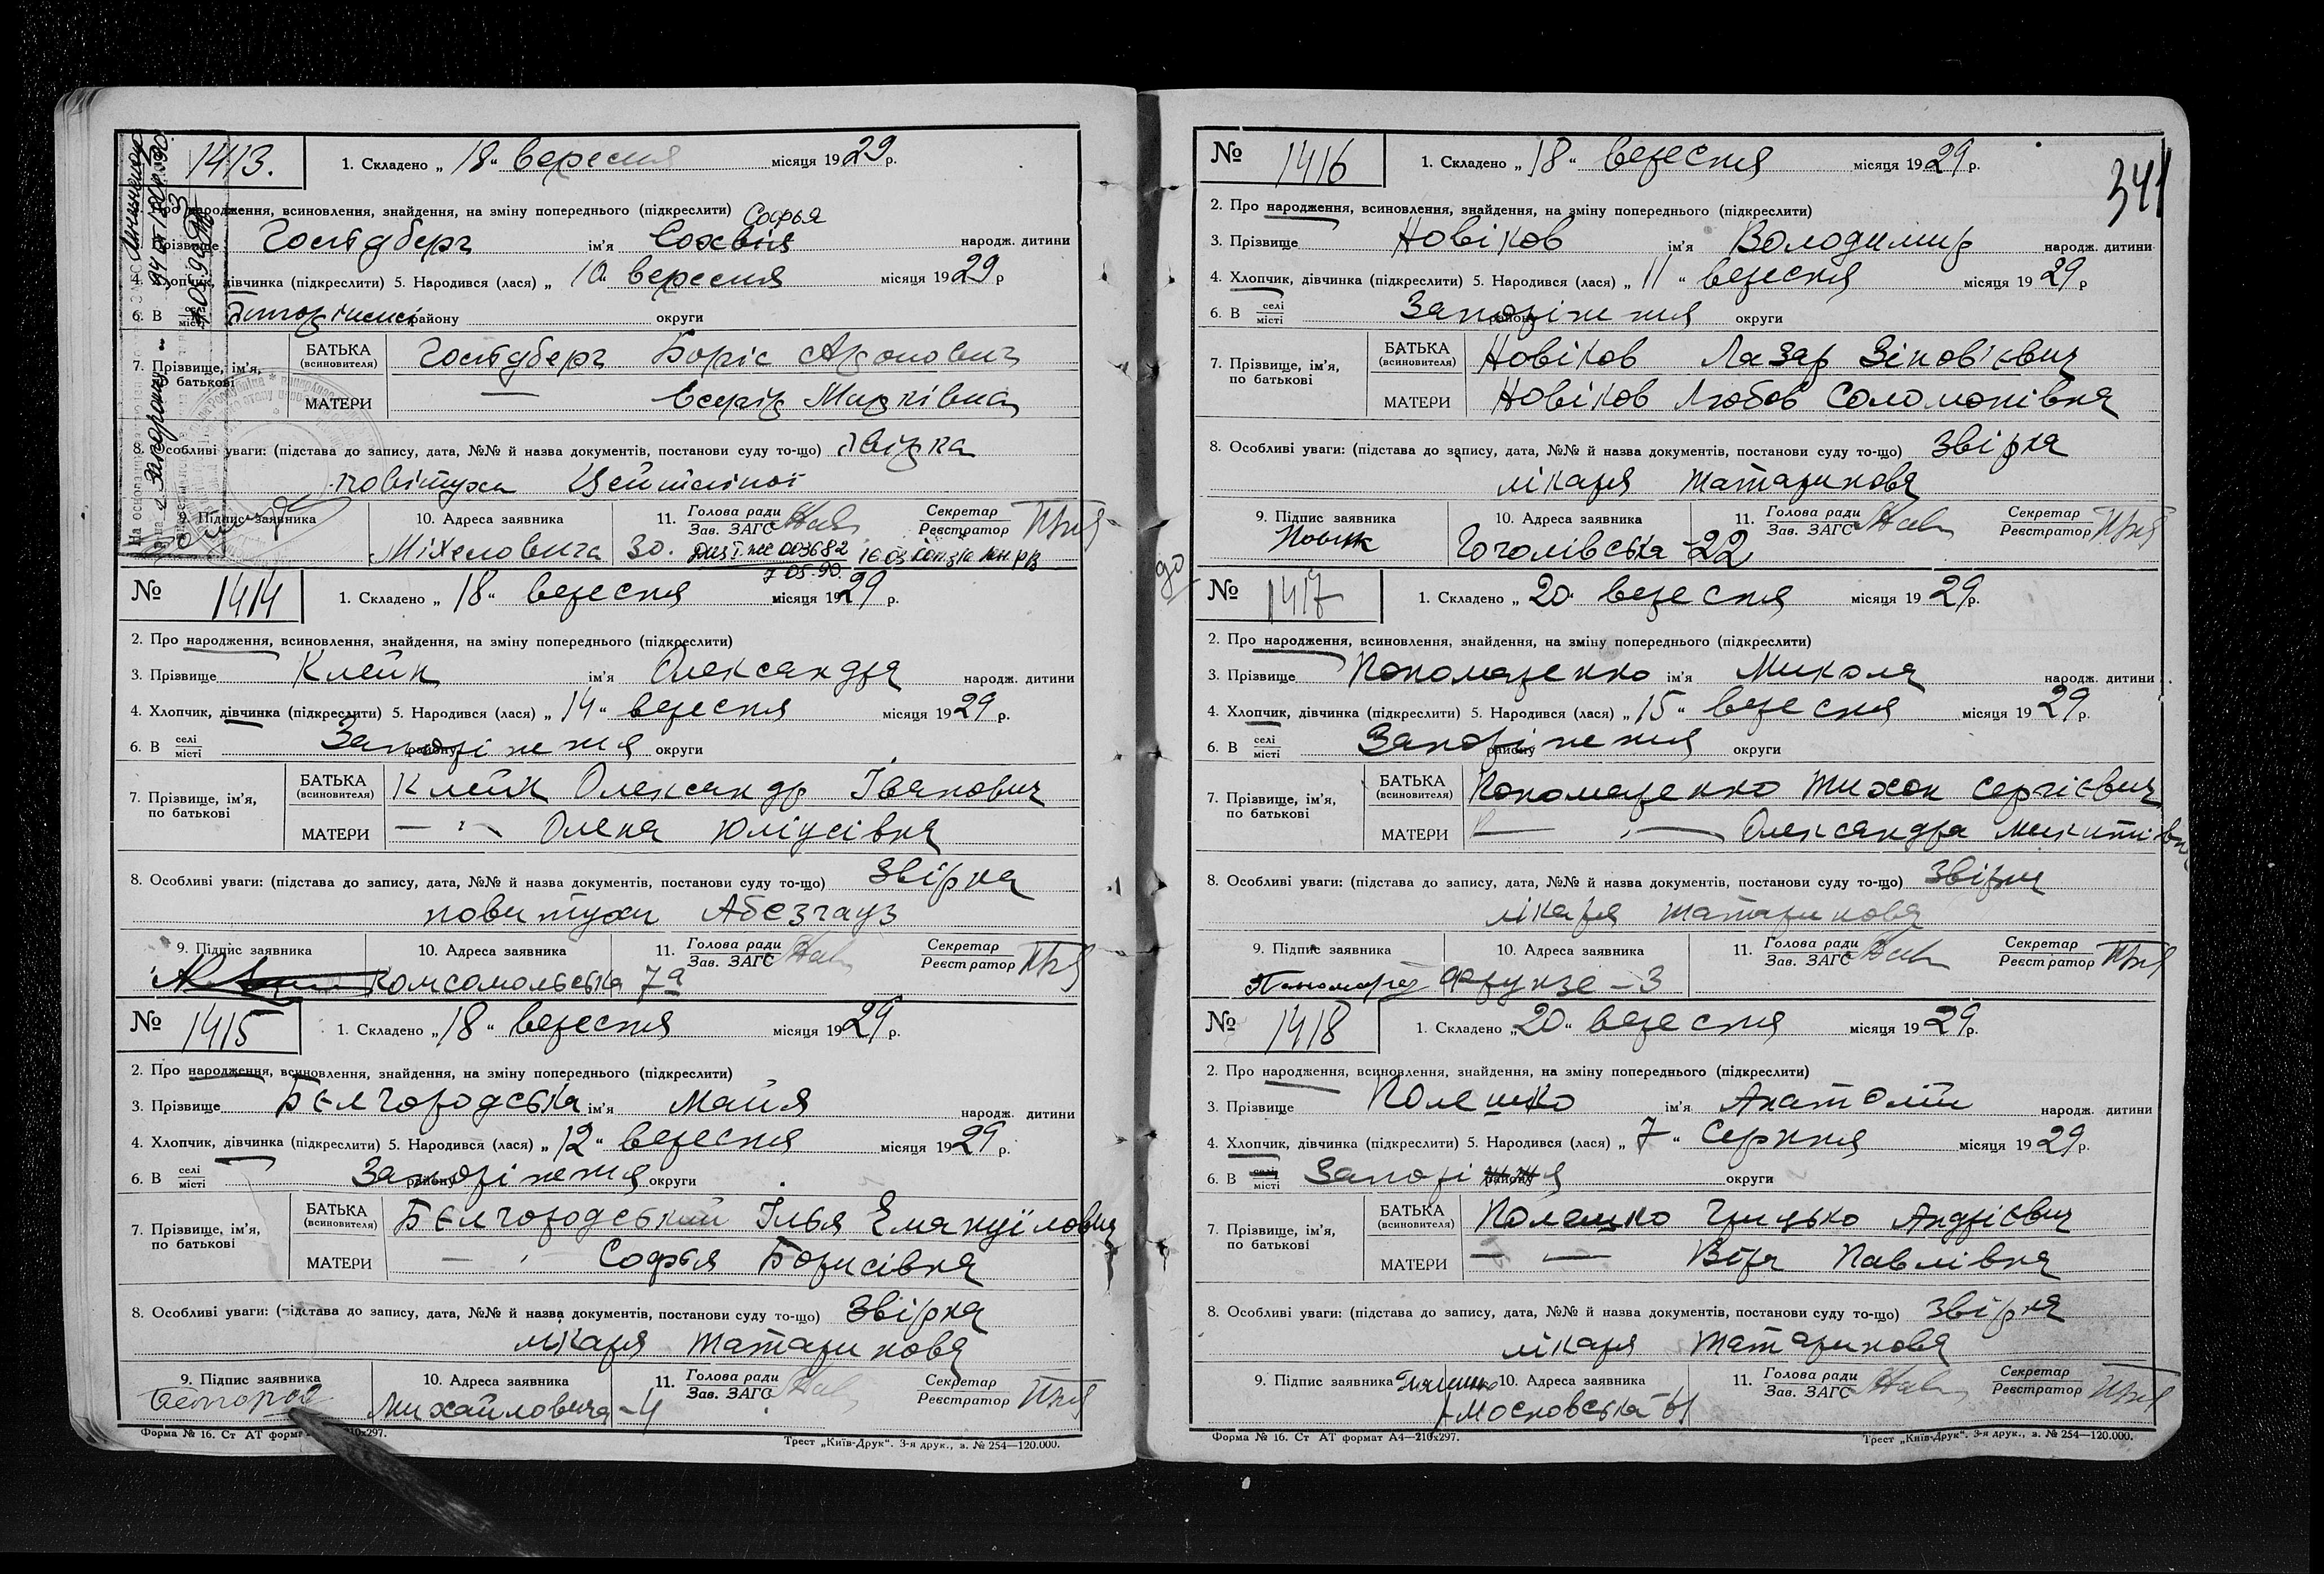 1413.
1. Складено „18“ вересня місяця 1929 р.
народження, всиновлення, знайдення, на зміну попереднього (підкреслити)
Софья
Прізвище ім'я народж. дитини
4. Хлопчик, дівчинка (підкреслити) 5. Народився (лася) „10“ вересня місяця 1929 р
6. В місті району округи
7. Прізвище, ім'я, по батькові
БАТЬКА (всиновителя) Боріс
МАТЕРИ —
8. Особливі уваги: (підстава до запису, дата, №№ й назва документів, постанови суду то-що)
повітухи
9. Підпис заявника 10. Адреса заявника 11. Голова ради Зав. ЗАГС Секретар Реєстратор
Міхеловича 30.
7 05.90.
№ 1414
1. Складено „18“ вересня місяця 1929 р.
2. Про народження, всиновлення, знайдення, на зміну попереднього (підкреслити)
3. Прізвище Клейн ім'я Олександра народж. дитини
4. Хлопчик, дівчинка (підкреслити) 5. Народився (лася) „14“ вересня місяця 1929 р.
6. В селі місті Запоріжжя району округи
7. Прізвище, ім'я, по батькові
БАТЬКА (всиновителя) Клейн Олександр Іванович
МАТЕРИ — „ — Олена Юліусівна
8. Особливі уваги: (підстава до запису, дата, №№ й назва документів, постанови суду то-що) Звірка
повитухи Абезгауз
9. Підпис заявника 10. Адреса заявника 11. Голова ради Зав. ЗАГС Секретар Реєстратор
Комсомольська 7а
№ 1415
1. Складено „18“ вересня місяця 1929 р.
2. Про народження, всиновлення, знайдення, на зміну попереднього (підкреслити)
3. Прізвище Бєлгородська ім'я Майя народж. дитини
4. Хлопчик, дівчинка (підкреслити) 5. Народився (лася) „12“ вересня місяця 1929 р.
6. В селі місті Запоріжжя району округи
7. Прізвище, ім'я, по батькові
БАТЬКА (всиновителя) Бєлгородський Ілья Емануїлович
МАТЕРИ — „ Софья Борисівна
8. Особливі уваги: (підстава до запису, дата, №№ й назва документів, постанови суду то-що) Звірка
лікаря Татаринова
9. Підпис заявника 10. Адреса заявника 11. Голова ради Зав. ЗАГС Секретар Реєстратор
Михайловича – 4
Форма № 16. Ст АТ 210х297.
Трест „Київ-Друк“. 3-я друк., з. № 254—120.000.
341
№ 1416
1. Складено „18“ вересня місяця 1929 р.
2. Про народження, всиновлення, знайдення, на зміну попереднього (підкреслити)
3. Прізвище Новіков ім'я Володимир народж. дитини
4. Хлопчик, дівчинка (підкреслити) 5. Народився (лася) „11“ вересня місяця 1929 р
6. В селі місті Запоріжжя району округи
7. Прізвище, ім'я, по батькові
БАТЬКА (всиновителя) Новіков Лазар Зіновієвич
МАТЕРИ Новіков Любов Соломонівна
8. Особливі уваги: (підстава до запису, дата, №№ й назва документів, постанови суду то-що) Звірка
лікаря Татаринова
9. Підпис заявника 10. Адреса заявника 11. Голова ради Зав. ЗАГС Секретар Реєстратор
Гоголівська – 22
до
№ 1417
1. Складено „20“ вересня місяця 1929 р.
2. Про народження, всиновлення, знайдення, на зміну попереднього (підкреслити)
3. Прізвище Пономаренко ім'я Микола народж. дитини
4. Хлопчик, дівчинка (підкреслити) 5. Народився (лася) „15“ вересня місяця 1929 р.
6. В селі місті Запоріжжя району округи
7. Прізвище, ім'я, по батькові
БАТЬКА (всиновителя) Пономаренко Тихон Сергієвич
МАТЕРИ — „ — Олександра Микитівна
8. Особливі уваги: (підстава до запису, дата, №№ й назва документів, постанови суду то-що) Звірка
лікаря Татаринова
9. Підпис заявника 10. Адреса заявника 11. Голова ради Зав. ЗАГС Секретар Реєстратор
Фрунзе – 3
№ 1418
1. Складено „20“ вересня місяця 1929 р.
2. Про народження, всиновлення, знайдення, на зміну попереднього (підкреслити)
3. Прізвище Полешко ім'я Анатолій народж. дитини
4. Хлопчик, дівчинка (підкреслити) 5. Народився (лася) „7“ Серпня місяця 1929 р.
6. В селі місті Запоріжжя району округи
7. Прізвище, ім'я, по батькові
БАТЬКА (всиновителя) Полешко Грицько Андрієвич
МАТЕРИ — — Віра Павлівна
8. Особливі уваги: (підстава до запису, дата, №№ й назва документів, постанови суду то-що) Звірка
лікаря Татаринова
9. Підпис заявника 10. Адреса заявника 11. Голова ради Зав. ЗАГС Секретар Реєстратор
Московська
Форма № 16. Ст АТ формат А4—210х297.
Трест „Київ-Друк“. 3-я друк., з. № 254—120.000.